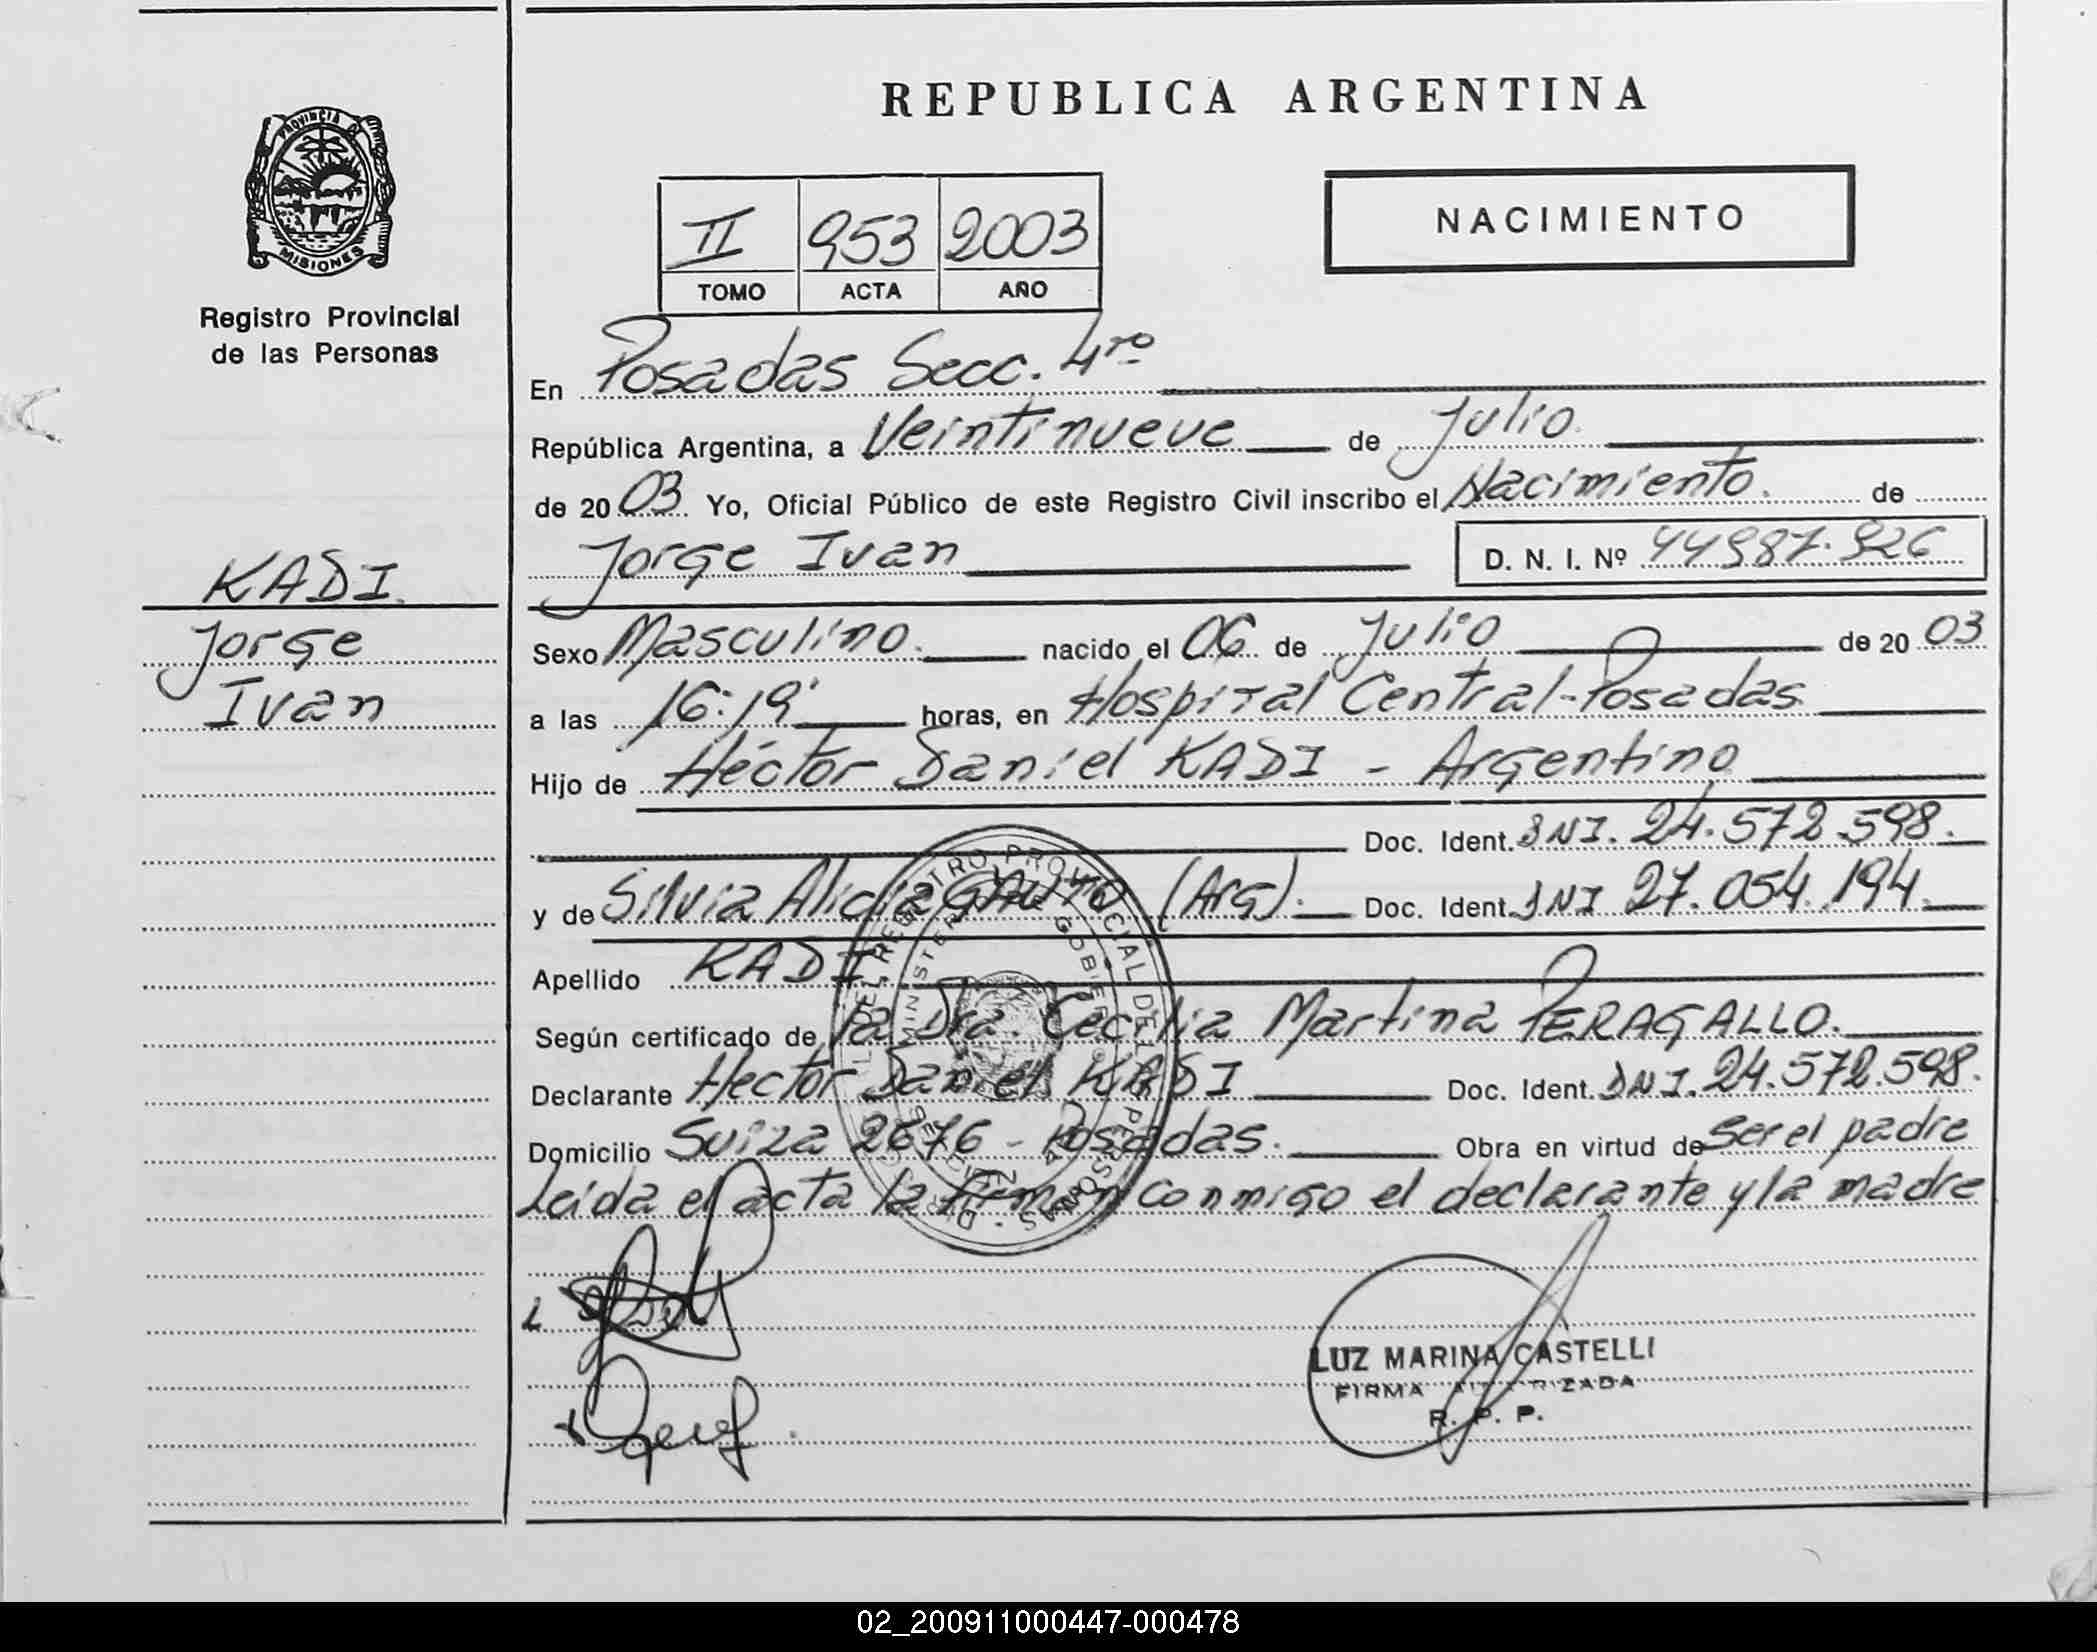 REPUBLICA ARGENTINA
PROVINCIA DE
MISIONES
Registro Provincial
de las Personas
NACIMIENTO
II 953 2003
TOMO ACTA AÑO
En Posadas Secc. 4ro
República Argentina, a Veintinueve de Julio.
de 2003. Yo, Oficial Público de este Registro Civil inscribo el Nacimiento. de
Jorge Ivan D. N. I. Nº 44987.926
KADI.
Jorge
Ivan
Sexo Masculino. nacido el 06 de Julio de 20 03
a las 16:19' horas, en Hospital Central-Posadas
Hijo de Héctor Daniel KADI - Argentino
Doc. Ident. DNI. 24.572.598.
y de Silvia Alicia GAUTO (Arg). Doc. Ident. DNI 27.054.194.
Apellido KADI.
Según certificado de la Dra. Cecilia Martina PERAGALLO.
Declarante Hector Daniel KADI Doc. Ident. DNI. 24.572.598.
Domicilio Suiza 2676 - Posadas. Obra en virtud de ser el padre
Leída el acta la firman conmigo el declarante y la madre
LUZ MARINA CASTELLI
FIRMA AUTORIZADA
R. P. P.
02_200911000447-000478